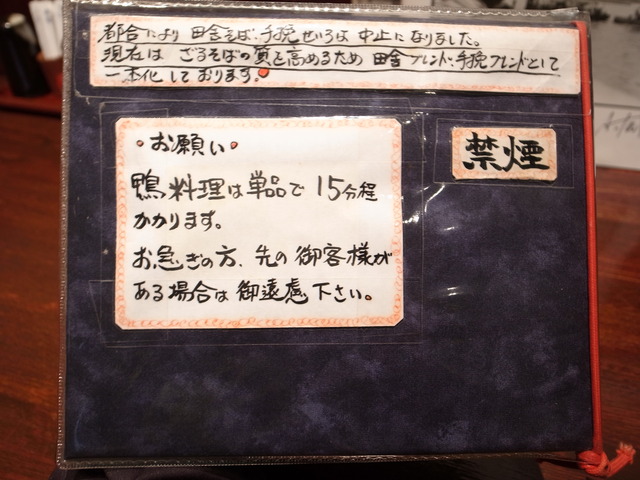 都合により 田舎そば、手挽せいろは 中止になりました。
現在は ざるそばの質を高めるため 田舎ブレンド、手挽ブレンドとして
一本化しております。
・お願い・
鴨料理は単品で 15分程
かかります。
お急ぎの方、先の御客様が
ある場合は御遠慮下さい。
禁煙